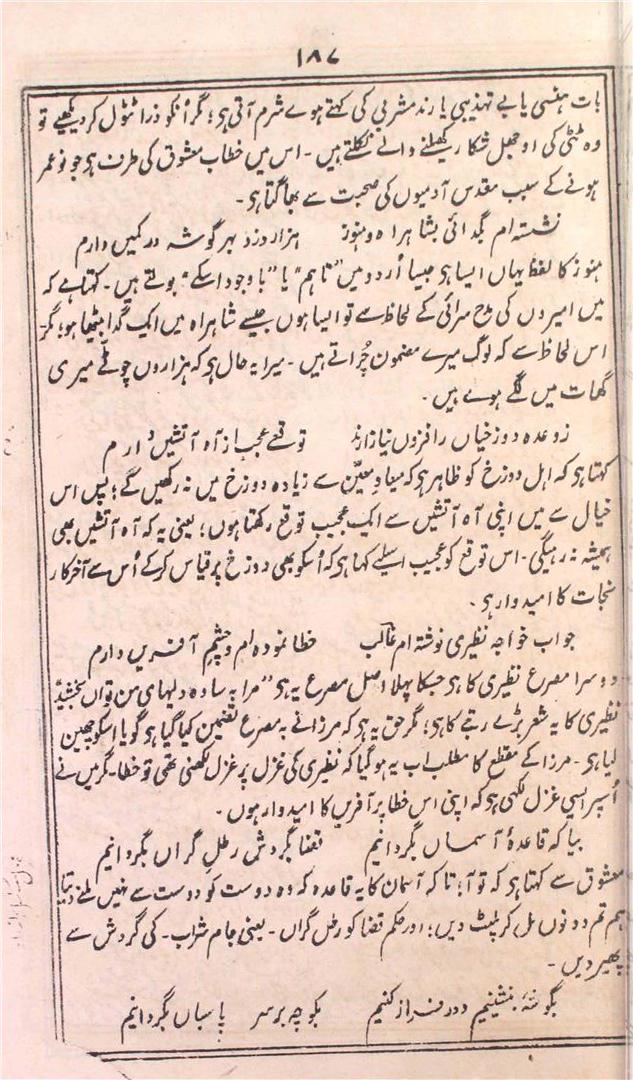 ۱۸۷
بات ہنسی یا بے تہذیبی یا رند مشربی کی کہتے ہوے شرم آتی ہی؛ مگر اُنکو ذرا ٹٹول کر دیکھیے تو
وہ ٹٹی کی اوجھل شکار کھیلنے والے نکلتے ہیں ۔ اس میں خطاب معشوق کی طرف ہی جو نو عمر
ہونے کے سبب مقدس آدمیوں کی صحبت سے بھاگتا ہی ۔
نشستہ ام بگدائی بشاہراہ و ہنوز ہزار دزد بہر گوشہ در کمیں دارم
ہنوز کا لفظ یہاں ایسا ہی جیسا اُردو میں "تاہم" یا "باوجود اسکے" بولتے ہیں ۔ کہتا ہے کہ
میں امیروں کی مدح سرائی کے لحاظ سے تو ایسا ہوں جیسے شاہراہ میں ایک گدا بیٹھا ہو؛ مگر
اس لحاظ سے کہ لوگ میرے مضمون چُراتے ہیں ۔ میرا یہ حال ہی کہ ہزاروں چوٹے میری
گھات میں لگے ہوے ہیں ۔
ز وعدہ دوزخیاں را فزوں نیازارند توقعے عجب از آہ آتشیں دارم
کہتا ہی کہ اہل دوزخ کو ظاہر ہی کہ میعادِ معیّن سے زیادہ دوزخ میں نہ رکھیں گے؛ پس اس
خیال سے میں اپنی آہ آتشیں سے ایک عجیب توقع رکھتا ہوں؛ یعنی یہ کہ آہ آتشیں بھی
ہمیشہ نہ رہیگی ۔ اس توقع کو عجیب اسلیے کہا ہی کہ اُسکو بھی دوزخ پر قیاس کر کے اُس سے آخرکار
نجات کا امیدوار ہی ۔
جواب خواجہ نظیری نوشتہ ام غالب خطا نمودہ ام و چشمِ آفریں دارم
دوسرا مصرع نظیری کا ہی جسکا پہلا اصل مصرع یہ ہی "مرا بہ سادہ دلیہای من تواں بخشید"
نظیری کا یہ شعر بڑے رتبے کا ہی؛ مگر حق یہ ہی کہ مرزا نے یہ مصرع تضمین کیا گیا ہی گویا اسکو چھین
لیا ہی ۔ مرزا کے مقطع کا مطلب اب یہ ہو گیا کہ نظیری کی غزل پر غزل لکھنی تھی تو خطا ۔ مگر میں نے
اُسپر ایسی غزل لکھی ہی کہ اپنی اس خطا پر آفریں کا امیدوار ہوں ۔
بیا کہ قاعدۂ آسماں بگردانیم قضا بگردشِ رطلِ گراں بگردانیم
معشوق سے کہتا ہی کہ تو آ؛ تاکہ آسمان کا یہ قاعدہ کہ وہ دوست کو دوست سے نہیں ملنے دیتا
ہم تم دونوں مل کر پلٹ دیں؛ اور حکم قضا کو رطل گراں ۔ یعنی جامِ شراب ۔ کی گردش سے
پھیر دیں ۔
بگوشۂ بنشینیم و در فراز کنیم بکوچہ بر سر پاسباں بگردانیم